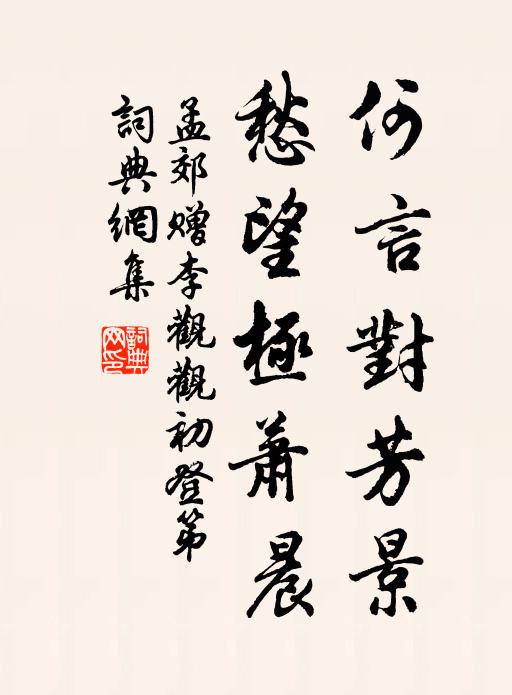 何言對芳景
愁望極蕭晨
孟郊赠李觀觀初登第
詞典網集
詞典網印